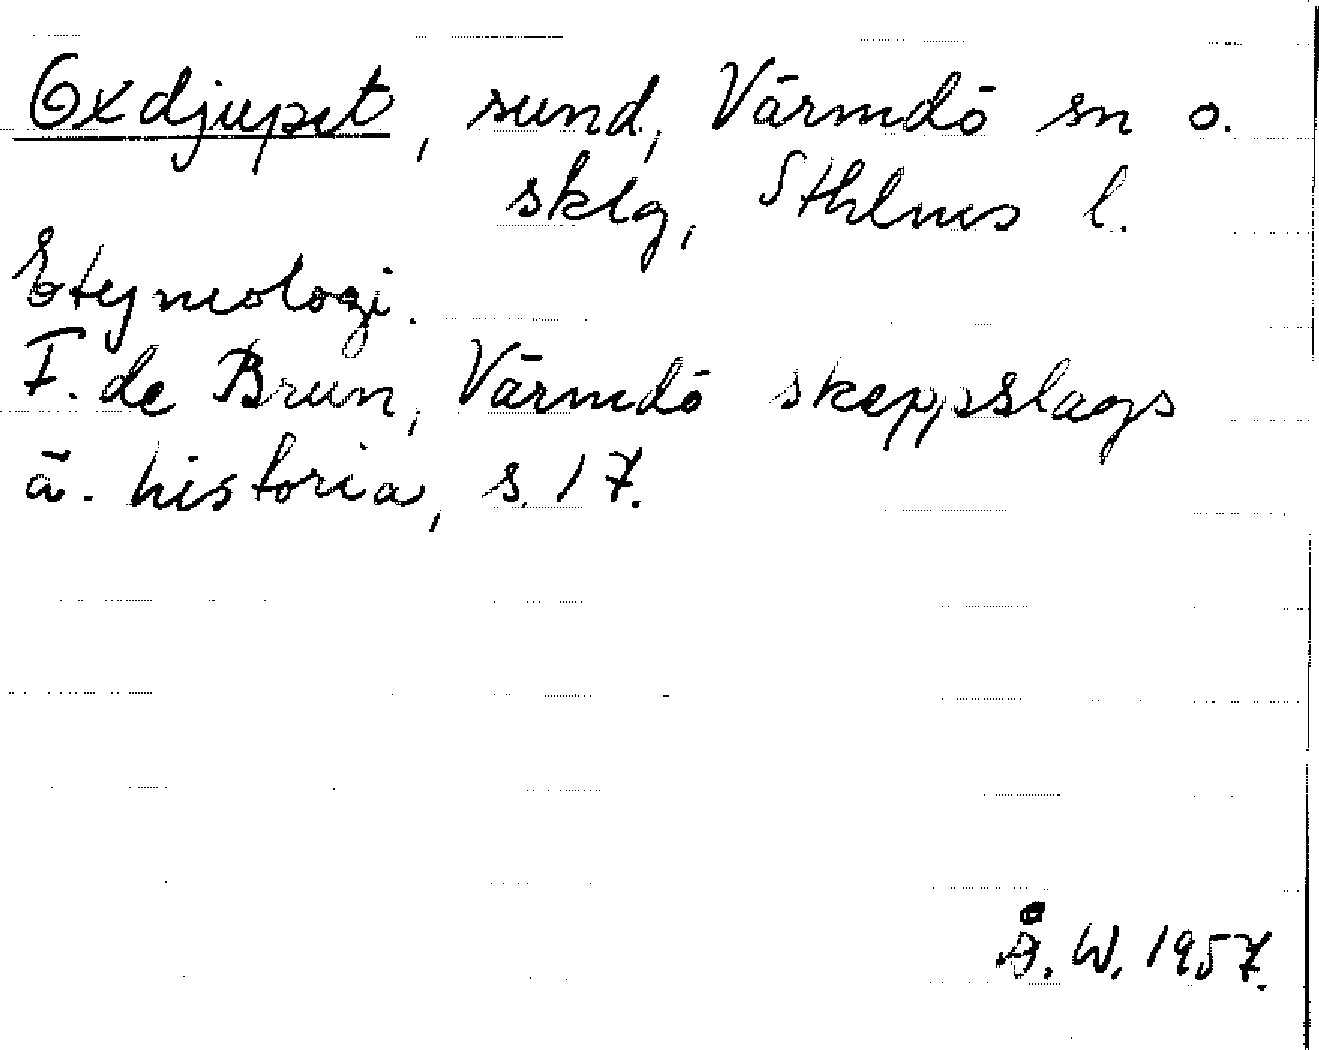 Oxdjupet, sund, Värmdö sn o.
sklg, Sthlms l.
Etymologi.
F. de Brun, Värmdö skeppslags
ä. historia, s. 17.
Å. W. 1957.